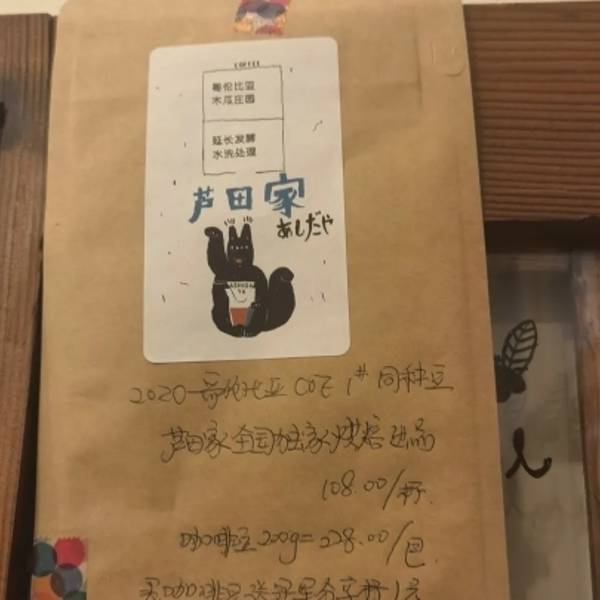 COFFEE
哥伦比亚
木瓜庄园
延长发酵
水洗处理
芦田家
あしだや
2020 哥伦比亚 COE 1# 同种豆
芦田家全国独家烘焙出品
108.00/杯.
咖啡豆 200g=228.00/包
买咖啡豆送